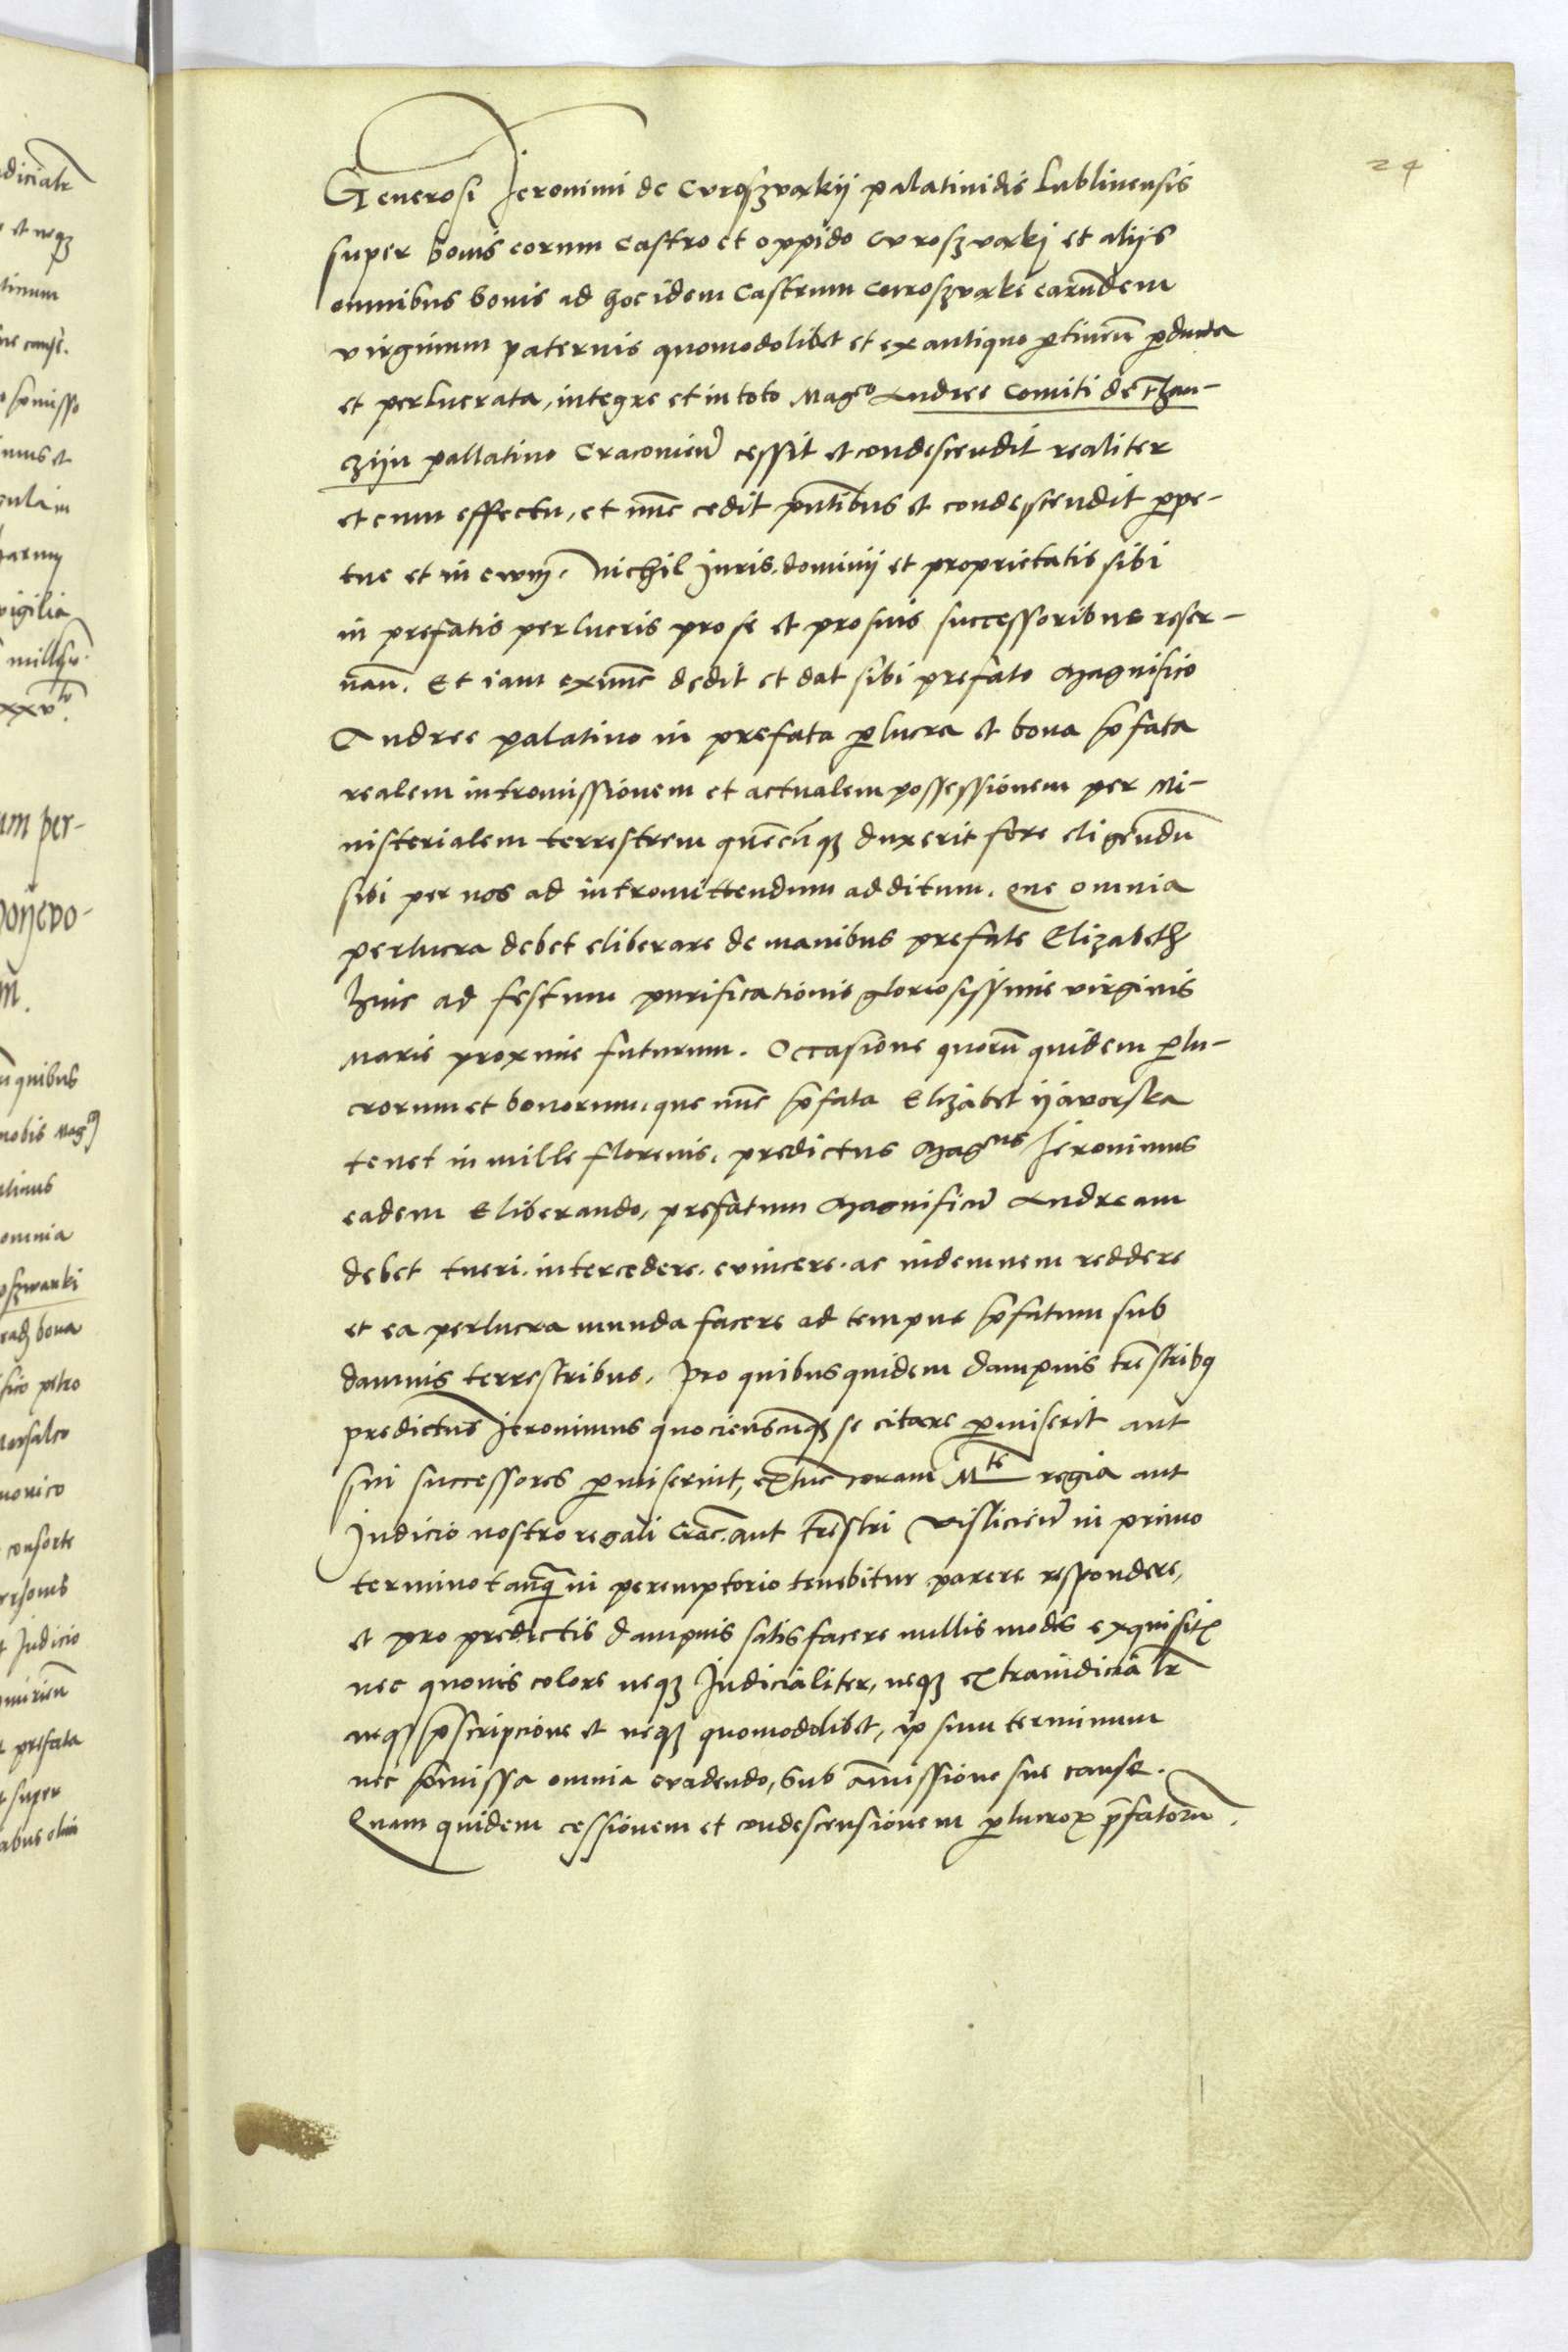 24
Generosi Jeronimi de Cvroszvakij palatinidis Lublinensis
super bonis eorum castro et oppido cvroszvakj et alijs
omnibus bonis ad hoc idem Castrum Curoszvaki earundem
virginum paternis quomodolibet et ex antiquo ꝑtineñ
et perlucrata, integre et in toto Mag^co Andree Comiti de Than-
czijn pallatino Cracovień cessit et condescendit realiter
et cum effectu, et nunc cedit pñtibus et condescendit ꝑpe-
tue et in ewm̃. Nichil Juris. dominij et proprietatis sibi
in prefatis perlucris pro se et pro suis successoribus reser-
vañ. Et iam exnunc dedit et dat sibi prefato Magnifico
Andree palatino in prefata ꝑlucra et bona p̃fata
realem intromissionem et actualem possessionem per Mi-
nisterialem terrestrem quẽcũqꝫ duxerit fore eligendũ
sibi per nos ad intromittendum additum. que omnia
perlucra debet eliberare de manibus prefate Elizabeth
hinc ad festum purificationis gloriosissime virginis
Marie proxime futurum. Occasione quorũ quidem ꝑlu-
crorum et bonorum, que nunc p̃fata Elizabet ijavorska
tenet in mille florenis, predictus Mag^cus Jeronimus
eadem Eliberando, prefatum Magnificũ Andream
debet tueri. intercedere. evincere. ac indemnem reddere
et ea perlucra munda facere ad tempus p̃fatum sub
damnis terrestribus. Pro quibus quidem dampnis tr̃estribꝫ
predictus Jeronimus quocienscũqꝫ se citare ꝑmiserit aut
sui successores ꝑmiserint, extunc coram M^te regia aut
Judicio nostro regali Crac̃. aut tr̃estri vislicień in primo
termino tanq̃ in peremptorio tenebitur parere respondere,
et pro predictis dampnis satisfacere nullis modis exquisitꝭ
nec quovis colore neqꝫ Judicialiter, neqꝫ extraiudicialr̃
neqꝫ p̃scripcione et neqꝫ quomodolibet, ipsum terminum
nec p̃missa omnia evadendo, sub am̃issione sue cause.
Quam quidem cessionem et condescensionem ꝑlucroꝝ p̃fatorũ.